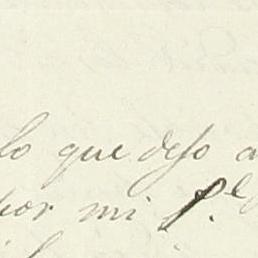 lo que dejo a
por mi